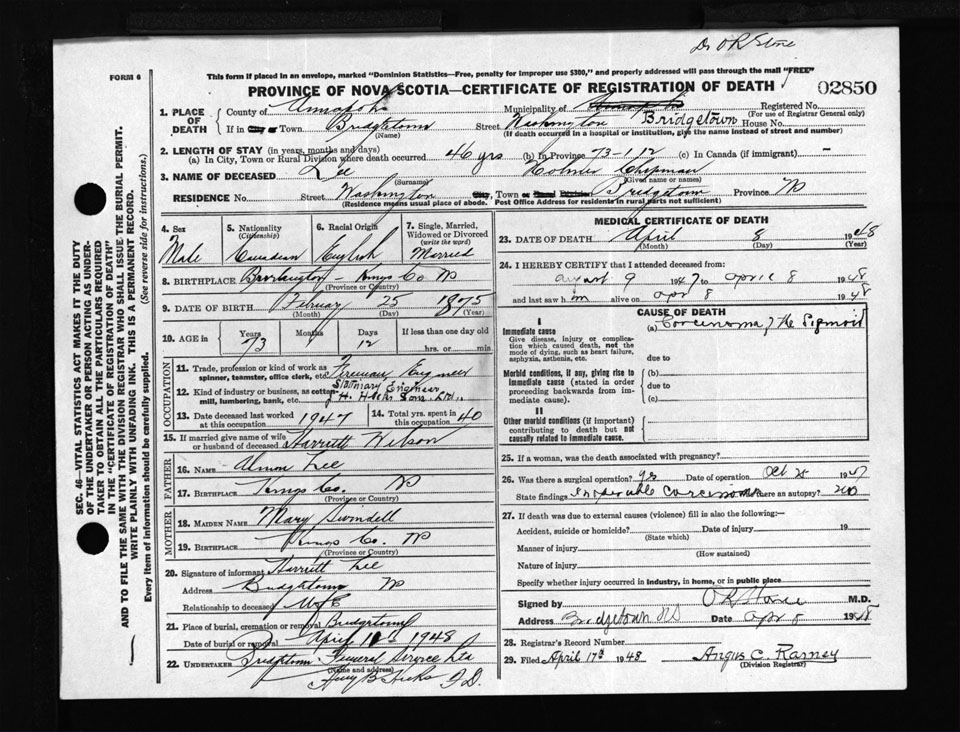 Dr O R Stone
FORM 6
This form if placed in an envelope, marked "Dominion Statistics—Free, penalty for improper use $300," and properly addressed will pass through the mail "FREE"
PROVINCE OF NOVA SCOTIA—CERTIFICATE OF REGISTRATION OF DEATH
02850
1. PLACE OF DEATH County of Annapolis Municipality of Annapolis Registered No.
(For use of Registrar General only)
If in City or Town Bridgetown (Name) Street Washington Bridgetown House No.
(If death occurred in a hospital or institution, give the name instead of street and number)
2. LENGTH OF STAY (in years, months and days)
(a) In City, Town or Rural Division where death occurred 46 yrs (b) In Province 73-1-12 (c) In Canada (if immigrant) -
3. NAME OF DECEASED Lee (Surname) Holmes Chipman (Given name or names)
RESIDENCE No. Street Washington City, Town or Rural Division Bridgetown Province NS
(Residence means usual place of abode. Post Office Address for residents in rural parts not sufficient)
4. Sex Male
5. Nationality (Citizenship) Canadian
6. Racial Origin English
7. Single, Married, Widowed or Divorced (write the word) Married
8. BIRTHPLACE Kings Co NS
(Province or Country)
9. DATE OF BIRTH February 25 1875
(Month) (Day) (Year)
10. AGE in Years 73 Months 1 Days 12 If less than one day old
hrs. or min.
OCCUPATION
11. Trade, profession or kind of work as spinner, teamster, office clerk, etc. Fireman Engineer
12. Kind of industry or business, as cotton mill, lumbering, bank, etc. Stationary Engineer
J. H. Hicks Sons Ltd.,
13. Date deceased last worked at this occupation 1947
14. Total yrs. spent in this occupation 40
15. If married give name of wife or husband of deceased Harriett Wilson
FATHER
16. NAME Almon Lee
17. BIRTHPLACE Kings Co. NS
(Province or Country)
MOTHER
18. MAIDEN NAME Mary Swindell
19. BIRTHPLACE Kings Co. NS
(Province or Country)
20. Signature of informant Harriett Lee
Address Bridgetown NS
Relationship to deceased Wife
21. Place of burial, cremation or removal Bridgetown
Date of burial or removal April 10 - 1948
22. UNDERTAKER Bridgetown Funeral Service Ltd
(Name and address)
B Hicks F.D.
MEDICAL CERTIFICATE OF DEATH
23. DATE OF DEATH April 8 1948
(Month) (Day) (Year)
24. I HEREBY CERTIFY that I attended deceased from:
august 9 1947 to april 8 1948
and last saw him alive on apr 8 1948
CAUSE OF DEATH
I
Immediate cause (a) Carcinoma of the Sigmoid
Give disease, injury or complication which caused death, not the mode of dying, such as heart failure, asphyxia, asthenia, etc.
due to
Morbid conditions, if any, giving rise to immediate cause (stated in order proceeding backwards from immediate cause).
(b)
due to
(c)
II
Other morbid conditions (if important) contributing to death but not causally related to immediate cause.
25. If a woman, was the death associated with pregnancy?
26. Was there a surgical operation? yes Date of operation Oct 25 1947
State findings Inoperable carcinoma Was there an autopsy? no
27. If death was due to external causes (violence) fill in also the following:—
Accident, suicide or homicide? Date of injury 19
(State which)
Manner of injury
(How sustained)
Nature of injury
Specify whether injury occurred in industry, in home, or in public place
Signed by O R Stone M.D.
Address Bridgetown NS Date Apr 8 1948
28. Registrar's Record Number
29. Filed April 17th 1948 Angus C. Ramey
(Division Registrar)
SEC. 46—VITAL STATISTICS ACT MAKES IT THE DUTY
OF THE UNDERTAKER OR PERSON ACTING AS UNDER-
TAKER TO OBTAIN ALL THE PARTICULARS REQUIRED
IN THE "CERTIFICATE OF REGISTRATION OF DEATH"
AND TO FILE THE SAME WITH THE DIVISION REGISTRAR WHO SHALL ISSUE THE BURIAL PERMIT.
WRITE PLAINLY WITH UNFADING INK. THIS IS A PERMANENT RECORD.
Every item of information should be carefully supplied. (See reverse side for instructions.)